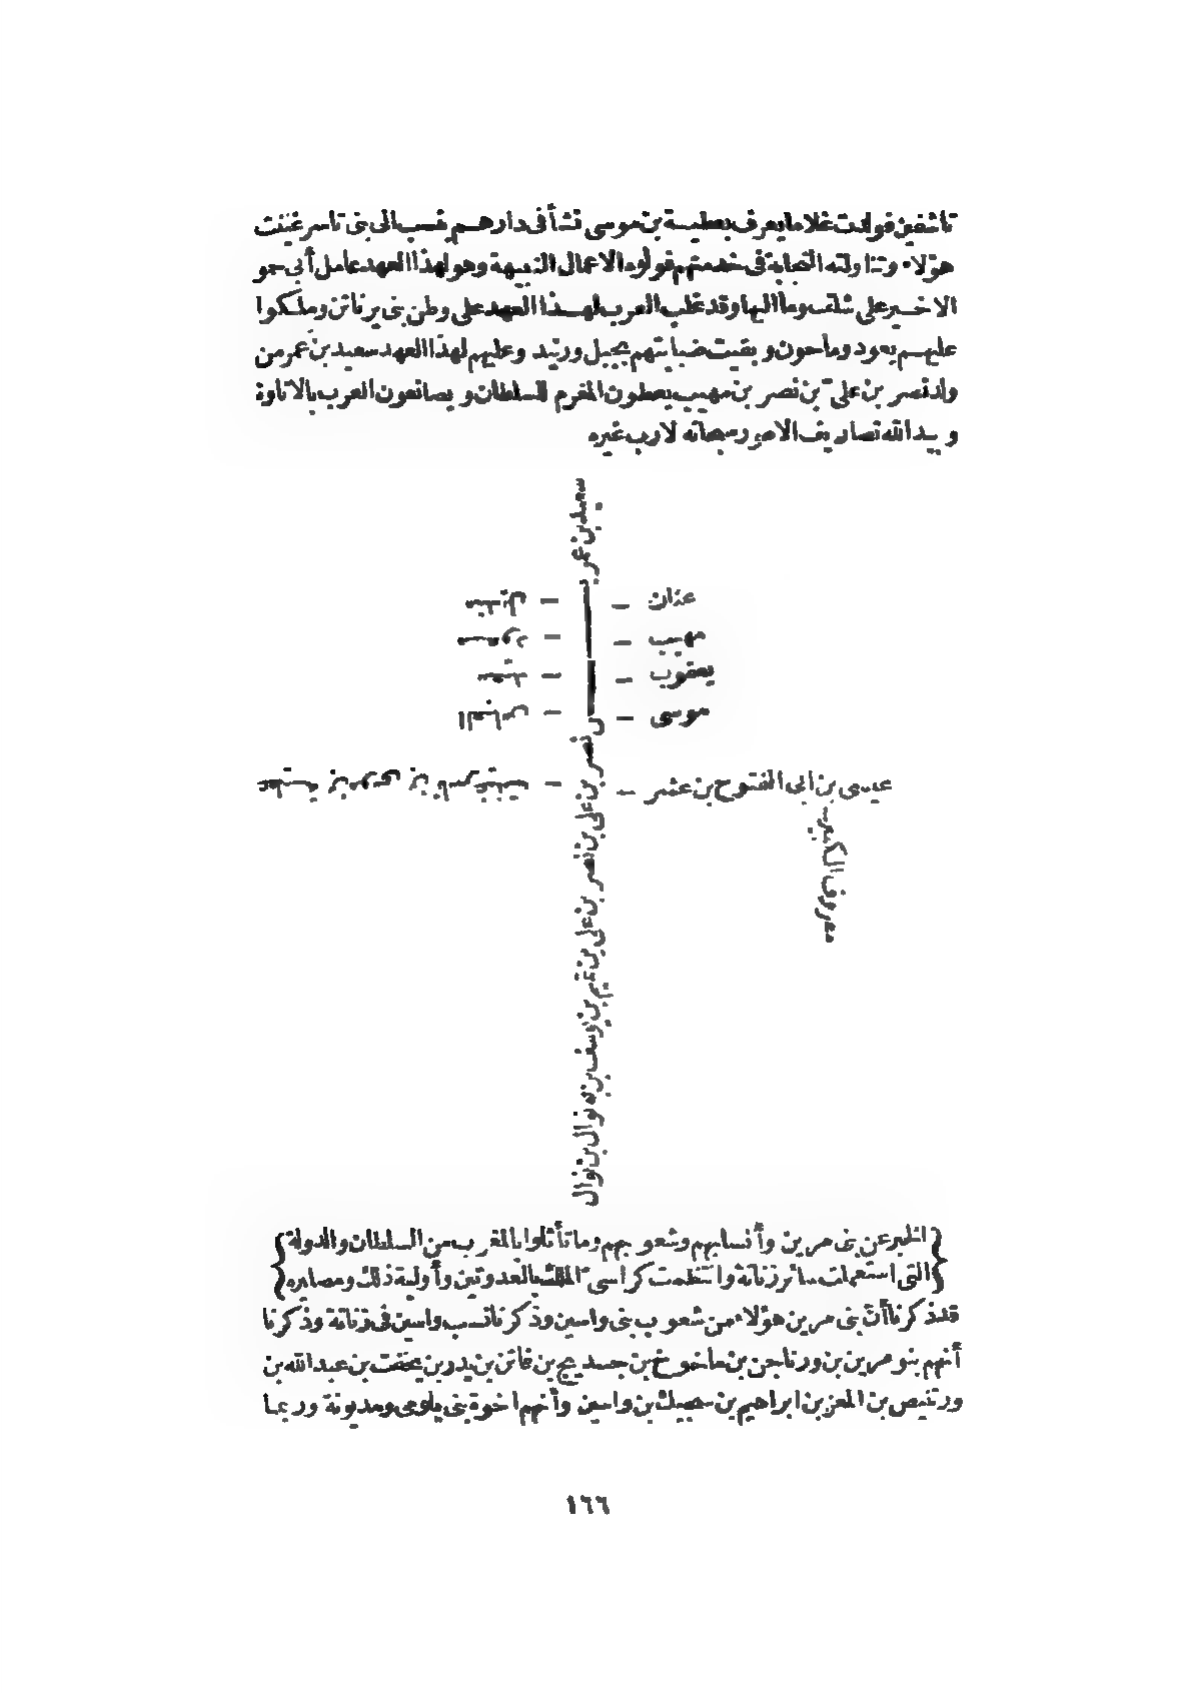 تاشفين فولدت غلاما يعرف بعطية بن موسى نشأ فى دارهم فنسب الى بنى تاسرغينت
هؤلاء وتناولته النجابة فى خدمتهم فولوه الاعمال النبيهة وهو لهذا العهد عامل أبى حمو
الاخير على شلف وما اليها وقد غلب العرب لهذا العهد على وطن بنى يرناتن وملكوا
عليهم يعود وماحون وبقيت صبابتهم بجبل ورنيد وعليهم لهذا العهد سعيد بن عمر من
ولد نصر بن علىّ بن نصر بن مهيب يعطون المغرم للسلطان ويصانعون العرب بالاتاوة
وبيد الله تصاريف الامور سبحانه لا رب غيره
سعيد بن عمر بن
عنان
مهيب
يعقوب
موسى
مسعود
سعد
العباس
نصر بن على بن نصر بن على بن تميم بن يوسف بن بو نوال بن نوال
عيسى بن أبى الفتوح بن عنتر
معروف الكبير
عطية بن موسى بن تاسرغينت
{الخبر عن بنى مرين وأنسابهم وشعوبهم وما تأثلوا بالمغرب من السلطان والدولة}
{التى استعملت سائر زناتة وانتظمت كراسى الملك بالعدوتين وأولية ذلك ومصايره}
قد ذكرنا أنّ بنى مرين هؤلاء من شعوب بنى واسين وذكرنا نسب واسين فى زناتة وذكرنا
أنهم بنو مرين بن ورتاجن بن ماخوخ بن جديج بن فاتن بن يدر بن يخفت بن عبد الله بن
ورتنيص بن المعز بن ابراهيم بن سحيك بن واسين وأنهم اخوة بنى يلومى ومديونة وربما
١٦٦